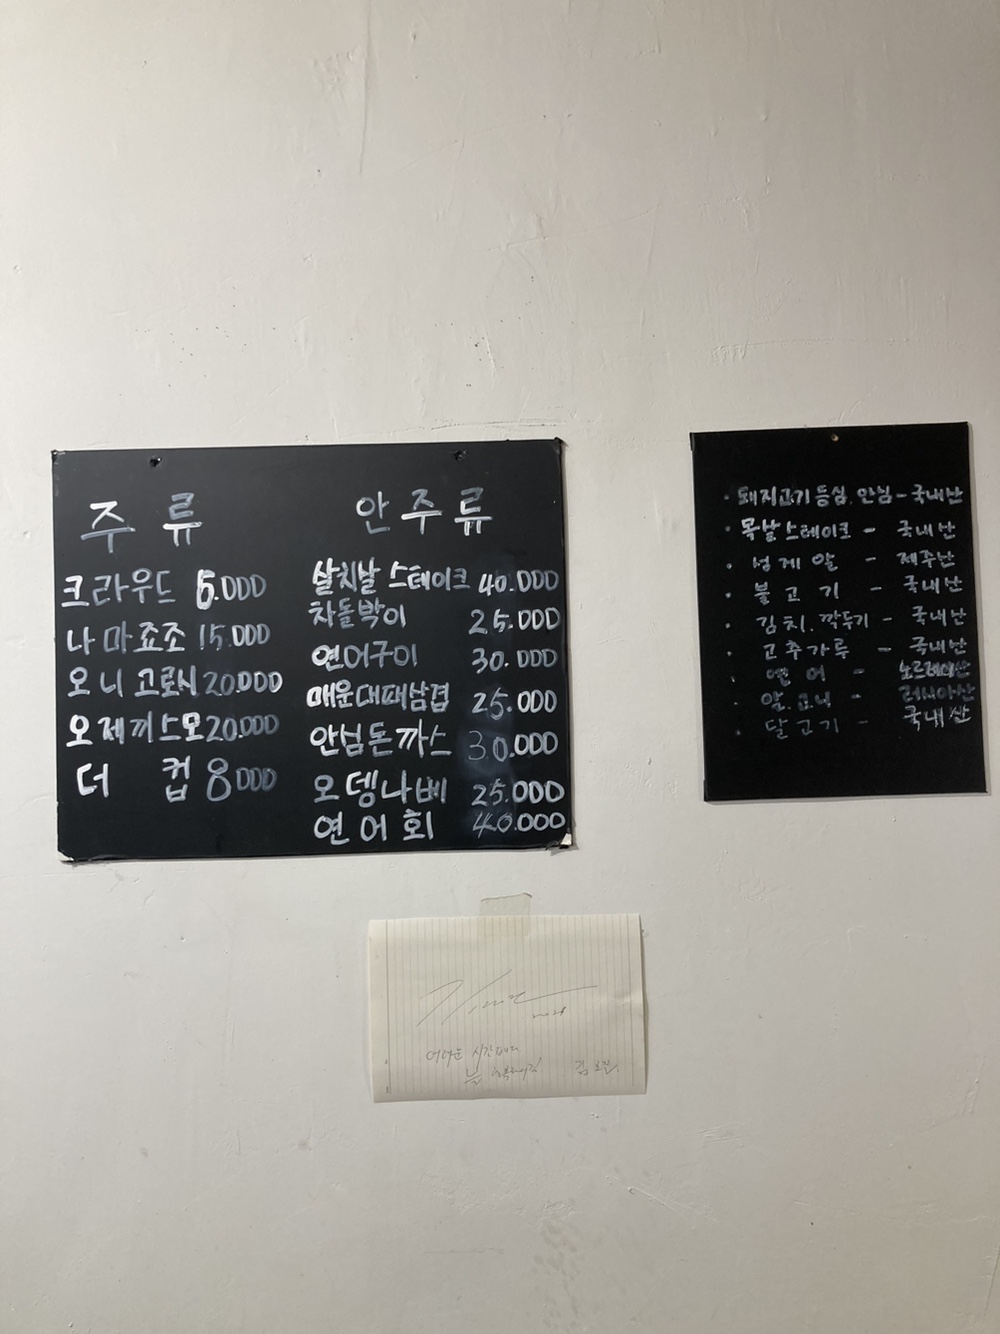 주류
크라우드 6.000
나마죠조 15.000
오니고로시 20.000
오제끼스모 20.000
더 컵 8000
안주류
살치살 스테이크 40.000
차돌박이 25.000
연어구이 30.000
매운대패삼겹 25.000
안심돈까스 30.000
오뎅나베 25.000
연어회 40.000
· 돼지고기 등심. 안심 - 국내산
· 목살 스테이크 - 국내산
· 성게 알 - 제주산
· 불고기 - 국내산
· 김치. 깍두기 - 국내산
· 고추가루 - 국내산
· 연어 - 노르웨이산
· 알.고니 - 러시아산
· 닭고기 - 국내산